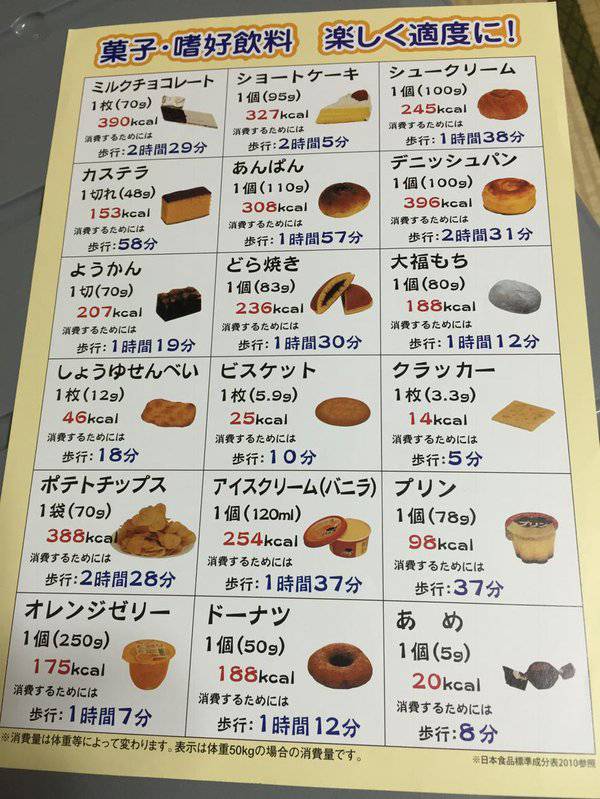 菓子・嗜好飲料　楽しく適度に!
ミルクチョコレート
1枚(70g)
390kcal
消費するためには
歩行:2時間29分
ショートケーキ
1個(95g)
327kcal
消費するためには
歩行:2時間5分
シュークリーム
1個(100g)
245kcal
消費するためには
歩行:1時間38分
カステラ
1切れ(48g)
153kcal
消費するためには
歩行:58分
あんぱん
1個(110g)
308kcal
消費するためには
歩行:1時間57分
デニッシュパン
1個(100g)
396kcal
消費するためには
歩行:2時間31分
ようかん
1切(70g)
207kcal
消費するためには
歩行:1時間19分
どら焼き
1個(83g)
236kcal
消費するためには
歩行:1時間30分
大福もち
1個(80g)
188kcal
消費するためには
歩行:1時間12分
しょうゆせんべい
1枚(12g)
46kcal
消費するためには
歩行:18分
ビスケット
1枚(5.9g)
25kcal
消費するためには
歩行:10分
クラッカー
1枚(3.3g)
14kcal
消費するためには
歩行:5分
ポテトチップス
1袋(70g)
388kcal
消費するためには
歩行:2時間28分
アイスクリーム(バニラ)
1個(120ml)
254kcal
消費するためには
歩行:1時間37分
プリン
1個(78g)
98kcal
消費するためには
歩行:37分
オレンジゼリー
1個(250g)
175kcal
消費するためには
歩行:1時間7分
ドーナツ
1個(50g)
188kcal
消費するためには
歩行:1時間12分
あめ
1個(5g)
20kcal
消費するためには
歩行:8分
※消費量は体重等によって変わります。表示は体重50kgの場合の消費量です。
※日本食品標準成分表2010参照